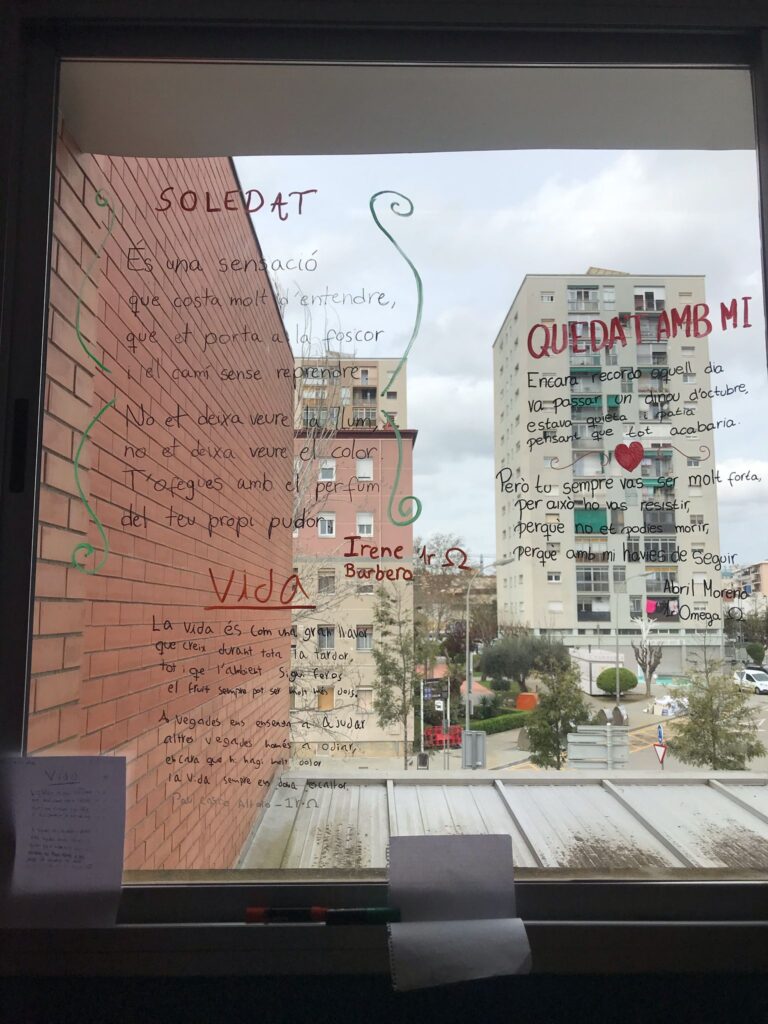 SOLEDAT
És una sensació
que costa molt d'entendre,
que et porta a la foscor
i el camí sense reprendre
No et deixa veure la llum
no et deixa veure el color
T'ofegues amb el perfum
del teu propi pudor
Irene 1r Ω
Barbero
Vida
La vida és com una gran llavor
que creix durant tota la tardor,
tot i que l'ambient sigui feroç
el fruit sempre pot ser molt més dolç.
A vegades ens ensenya a ajudar
altres vegades només a odiar,
encara que hi hagi molt dolor
la vida sempre ens dona
Pau - 1r Ω
QUEDAT AMB MI
Encara recordo aquell dia
va passar un dijou d'octubre,
estava quieta i patia
pensant que tot acabaria.
Però tu sempre vas ser molt forta,
per això ho vas resistir,
perquè no et podies morir,
perquè amb mi havies de seguir
Abril Moreno
1r Omega Ω
Vida